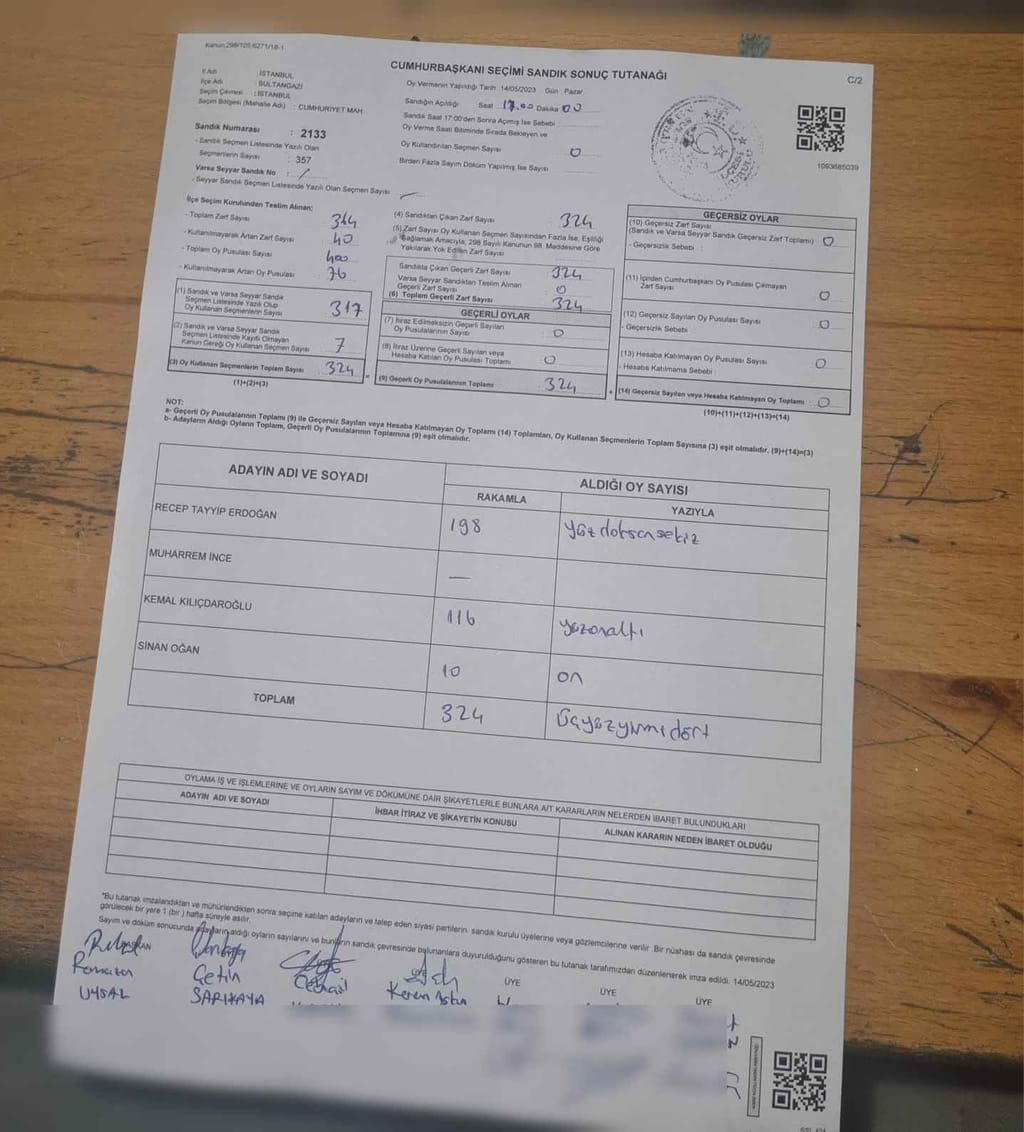 Kanun:298/105,6271/18-1
CUMHURBAŞKANI SEÇİMİ SANDIK SONUÇ TUTANAĞI
C/2
İl Adı : İSTANBUL
İlçe Adı : SULTANGAZİ
Seçim Çevresi : İSTANBUL
Seçim Bölgesi (Mahalle Adı) : CUMHURİYET MAH.
Sandık Numarası : 2133
- Sandık Seçmen Listesinde Yazılı Olan
Seçmenlerin Sayısı : 357
Varsa Seyyar Sandık No : /
- Seyyar Sandık Seçmen Listesinde Yazılı Olan Seçmen Sayısı
Oy Vermenin Yapıldığı Tarih 14/05/2023 Gün Pazar
Sandığın Açıldığı Saat 17.00 Dakika 00
Sandık Saat 17:00'den Sonra Açılmış İse Sebebi
Oy Verme Saati Bitiminde Sırada Bekleyen ve
Oy Kullandırılan Seçmen Sayısı 0
Birden Fazla Sayım Döküm Yapılmış İse Sayısı
1093685039
İlçe Seçim Kurulundan Teslim Alınan;
- Toplam Zarf Sayısı 364
- Kullanılmayarak Artan Zarf Sayısı 40
- Toplam Oy Pusulası Sayısı 400
- Kullanılmayarak Artan Oy Pusulası 76
(1) Sandık ve Varsa Seyyar Sandık
Seçmen Listesinde Yazılı Olup
Oy Kullanan Seçmenlerin Sayısı 317
(2) Sandık ve Varsa Seyyar Sandık
Seçmen Listesinde Kayıtlı Olmayan
Kanun Gereği Oy Kullanan Seçmen Sayısı 7
(3) Oy Kullanan Seçmenlerin Toplam Sayısı 324
(1)+(2)=(3)
(4) Sandıktan Çıkan Zarf Sayısı 324
(5) Zarf Sayısı Oy Kullanan Seçmen Sayısından Fazla İse, Eşitliği
Sağlamak Amacıyla; 298 Sayılı Kanunun 98. Maddesine Göre
Yakılarak Yok Edilen Zarf Sayısı
Sandıkta Çıkan Geçerli Zarf Sayısı 324
Varsa Seyyar Sandıktan Teslim Alınan
Geçerli Zarf Sayısı 0
(6) Toplam Geçerli Zarf Sayısı 324
GEÇERLİ OYLAR
(7) İtiraz Edilmeksizin Geçerli Sayılan
Oy Pusulalarının Sayısı 0
(8) İtiraz Üzerine Geçerli Sayılan veya
Hesaba Katılan Oy Pusulası Toplamı 0
(9) Geçerli Oy Pusulalarının Toplamı 324
GEÇERSİZ OYLAR
(10) Geçersiz Zarf Sayısı
(Sandık ve Varsa Seyyar Sandık Geçersiz Zarf Toplamı) 0
- Geçersizlik Sebebi :
(11) İçinden Cumhurbaşkanı Oy Pusulası Çıkmayan
Zarf Sayısı 0
(12) Geçersiz Sayılan Oy Pusulası Sayısı 0
- Geçersizlik Sebebi
(13) Hesaba Katılmayan Oy Pusulası Sayısı 0
- Hesaba Katılmama Sebebi :
(14) Geçersiz Sayılan veya Hesaba Katılmayan Oy Toplamı 0
(10)+(11)+(12)+(13)=(14)
NOT:
a- Geçerli Oy Pusulalarının Toplamı (9) ile Geçersiz Sayılan veya Hesaba Katılmayan Oy Toplamı (14) Toplamları, Oy Kullanan Seçmenlerin Toplam Sayısına (3) eşit olmalıdır. (9)+(14)=(3)
b- Adayların Aldığı Oyların Toplamı, Geçerli Oy Pusulalarının Toplamına (9) eşit olmalıdır.
ADAYIN ADI VE SOYADI
ALDIĞI OY SAYISI
RAKAMLA YAZIYLA
RECEP TAYYİP ERDOĞAN 198 yüzdoksansekiz
MUHARREM İNCE —
KEMAL KILIÇDAROĞLU 116 yüzonaltı
SİNAN OĞAN 10 on
TOPLAM 324 Üçyüzyirmidört
OYLAMA İŞ VE İŞLEMLERİNE VE OYLARIN SAYIM VE DÖKÜMÜNE DAİR ŞİKAYETLERLE BUNLARA AİT KARARLARIN NELERDEN İBARET BULUNDUKLARI
ADAYIN ADI VE SOYADI
İHBAR İTİRAZ VE ŞİKAYETİN KONUSU
ALINAN KARARIN NEDEN İBARET OLDUĞU
"Bu tutanak imzalandıktan ve mühürlendikten sonra seçime katılan adayların ve talep eden siyasi partilerin sandık kurulu üyelerine veya gözlemcilerine verilir. Bir nüshası da sandık çevresinde
görülecek bir yere 1 (bir) hafta süreyle asılır.
Sayım ve döküm sonucunda adayların aldığı oyların sayılarını ve bunların sandık çevresinde bulunanlara duyurulduğunu gösteren bu tutanak tarafımızdan düzenlenerek imza edildi. 14/05/2023
BAŞKAN ÜYE ÜYE ÜYE ÜYE
Ramazan Çetin Kerem
UYSAL SARIKAYA